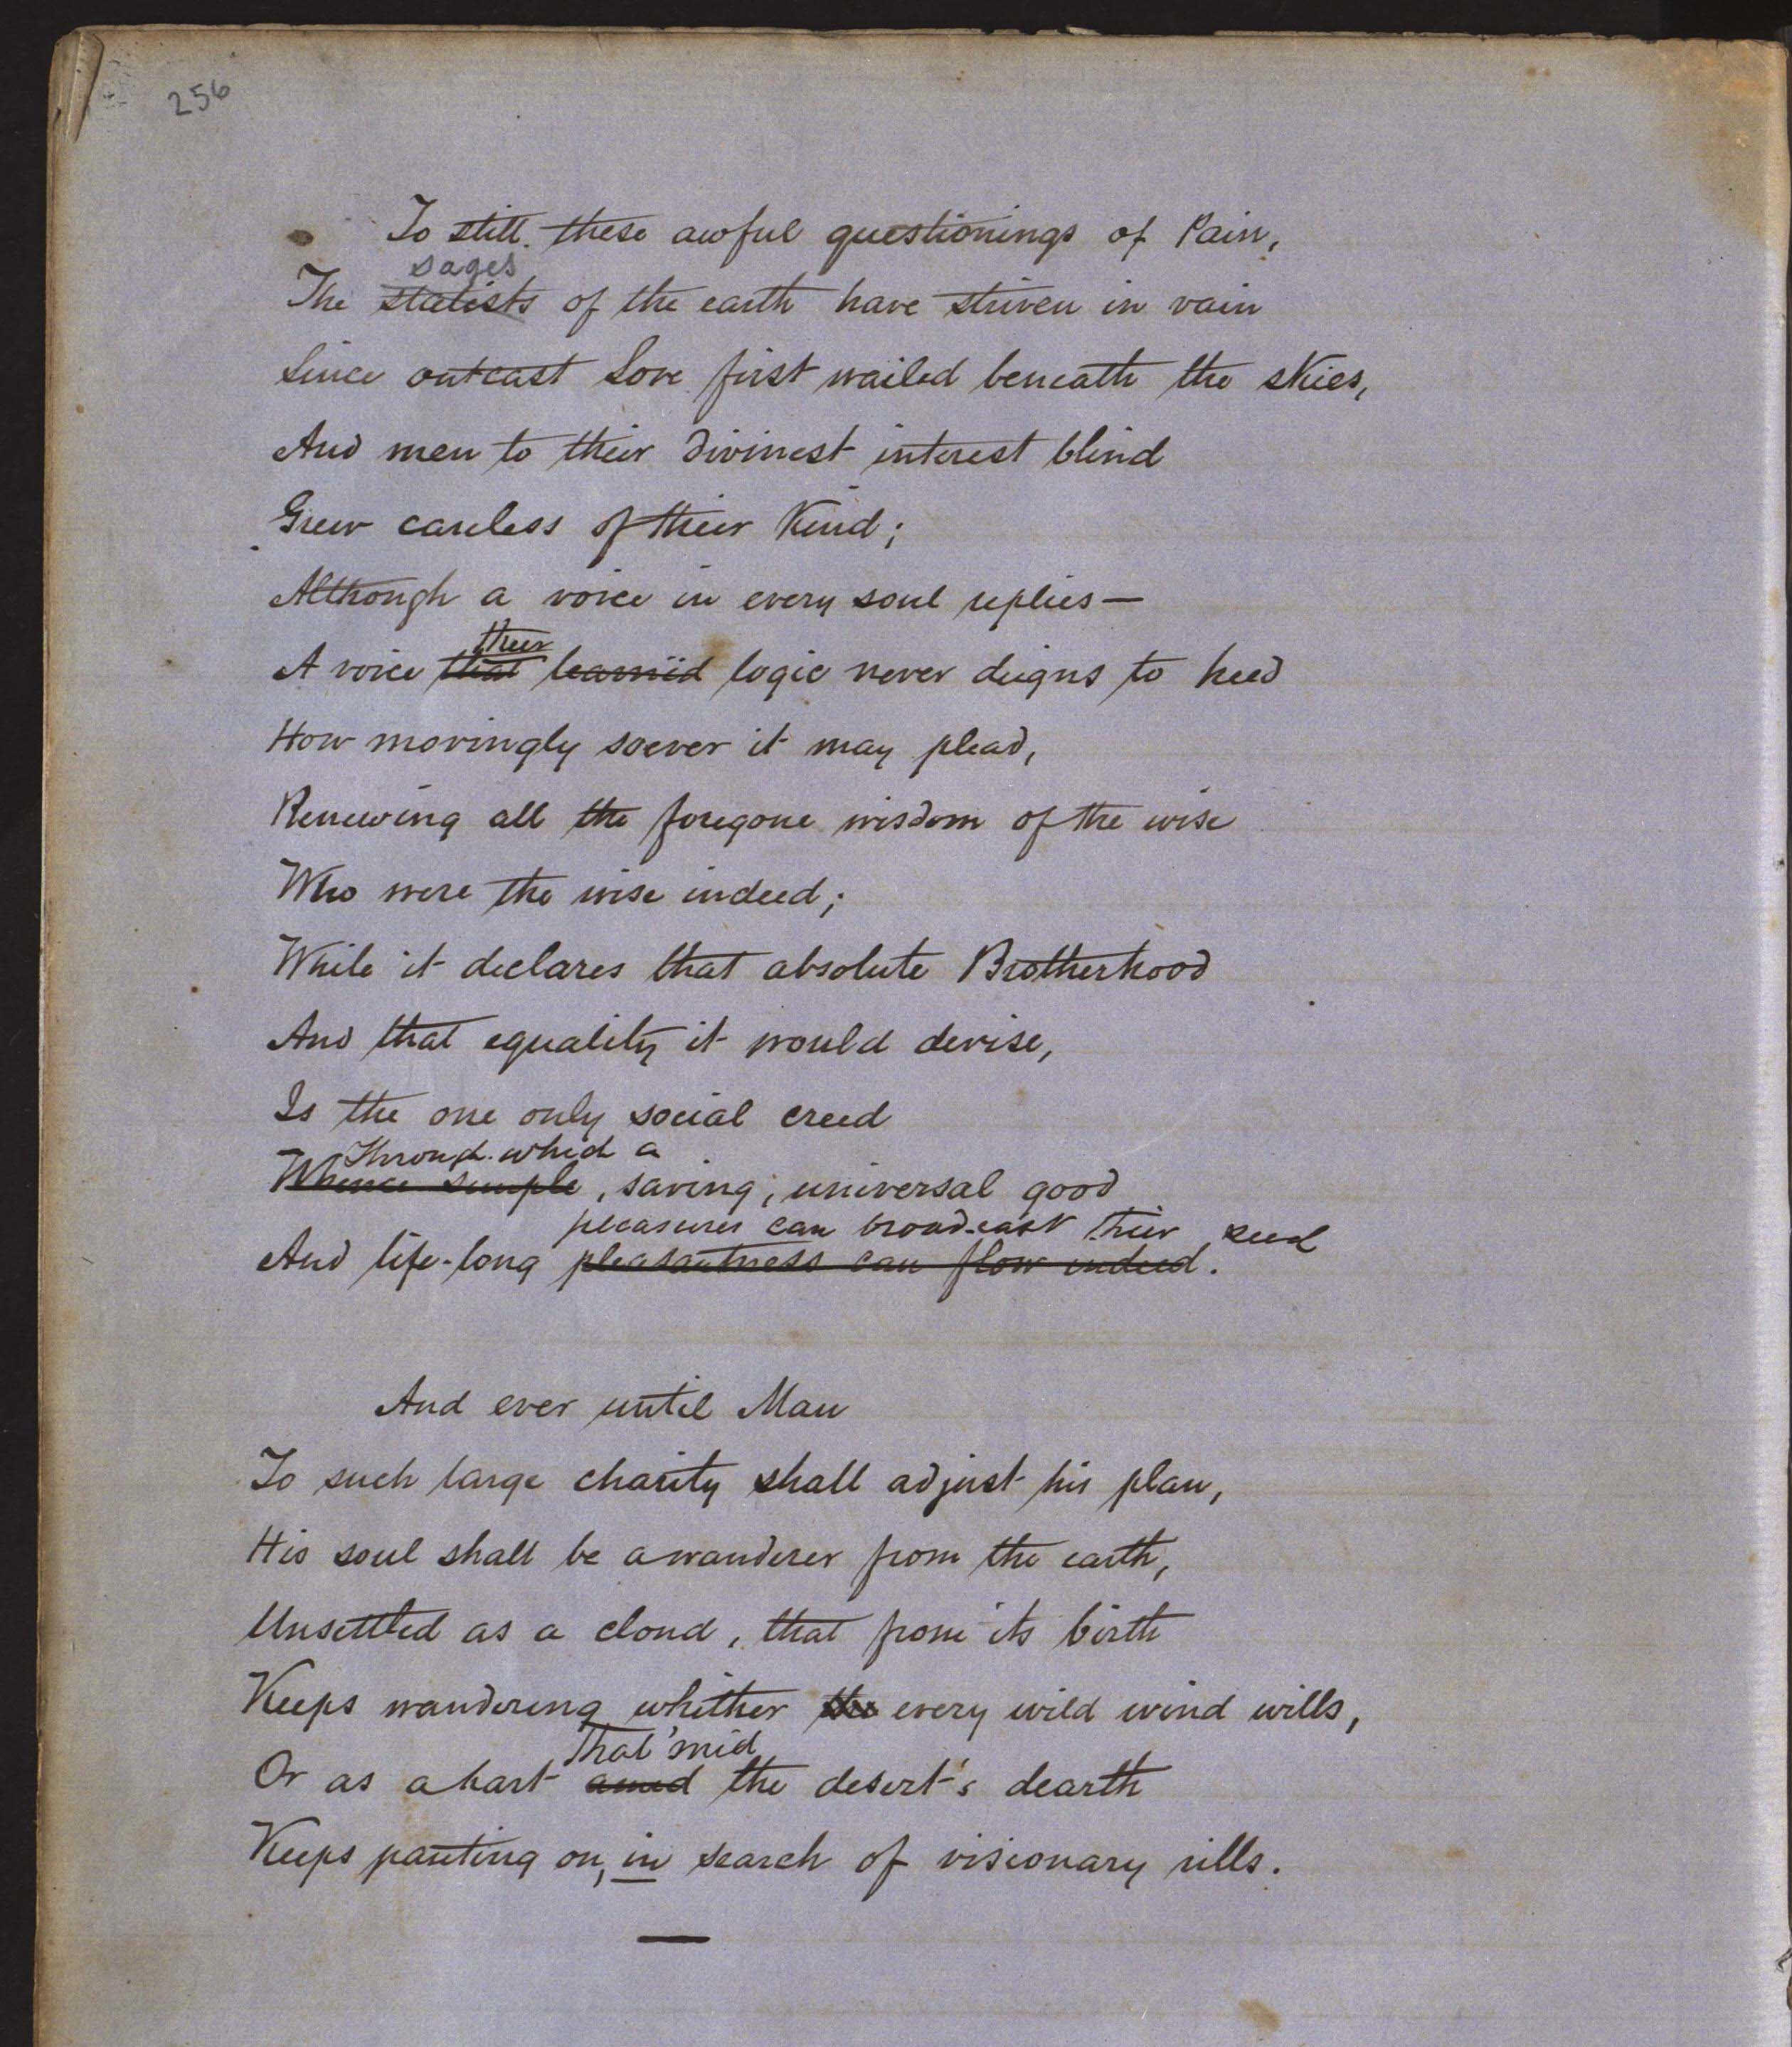 256
To still these awful questionings of Pain,
sages
The statists of the earth have striven in vain
Since outcast Love first wailed beneath the skies,
And men to their divinest interest blind
Grew careless of their Kind;
Although a voice in every soul replies—
their
A voice that learnèd logic never deigns to heed
How movingly soever it may plead,
Renewing all the foregone wisdom of the wise
Who were the wise indeed;
While it declares that absolute Brotherhood
And that equality it would devise,
Is the one only social creed
Through which a
Whence simple, saving, universal good
pleasures can broad-cast their seed
And life-long pleasantness can flow indeed.
And ever until Man
To such large charity shall adjust his plan,
His soul shall be a wanderer from the earth,
Unsettled as a cloud, that from its birth
Keeps wandering whither the every wild wind wills,
That 'mid
Or as a hart amid the desert's dearth
Keeps panting on, in search of visionary rills.